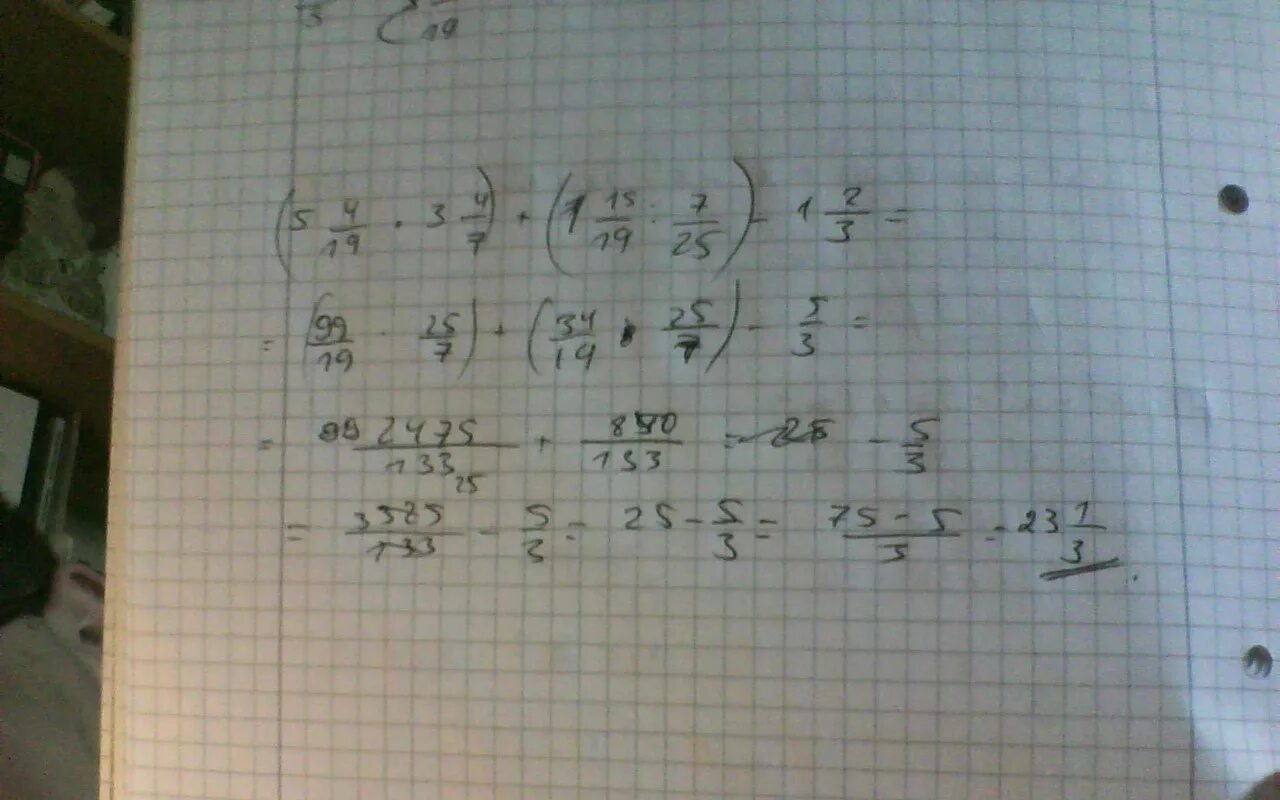 5 ( 19
(5 4/19 · 3 4/7) + (1 15/19 : 7/25) - 1 2/3 =
= (99/19 · 25/7) + (34/19 · 25/7) - 5/3 =
= 2475/133 + 850/133 - 5/3
= 3325/133 - 5/3 = 25 - 5/3 = 75 - 5/3 = 23 1/3
25